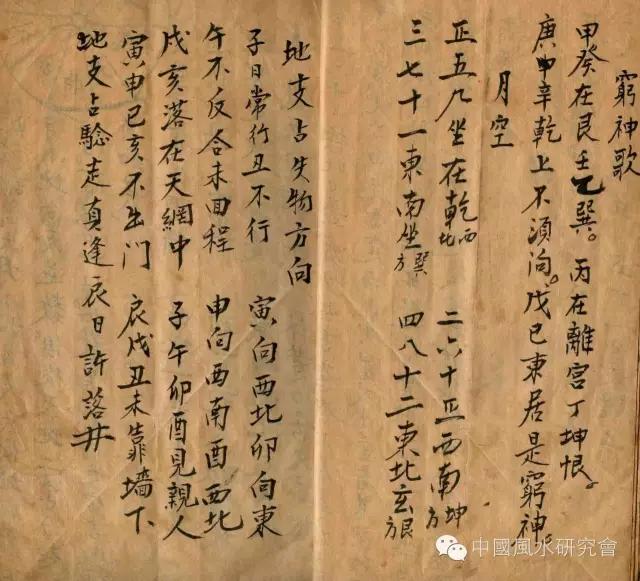 窮神歌
甲癸在艮壬乙巽。丙在離宮丁坤恨。
庚申辛乾上不須洵。戊己東居是窮神。
月空
正五九坐在乾西北 二六十正西南坤方
三七十一東南坐巽方 四八十二東北玄艮方
地支占失物方向
子日常行丑不行 寅向西北卯向東
午不反合未回程 申向西南酉西北
戌亥落在天網中 子午卯酉見親人
寅申巳亥不出门 辰戌丑未靠墻下
地支占驗走真逢辰日許落井
中國風水研究會